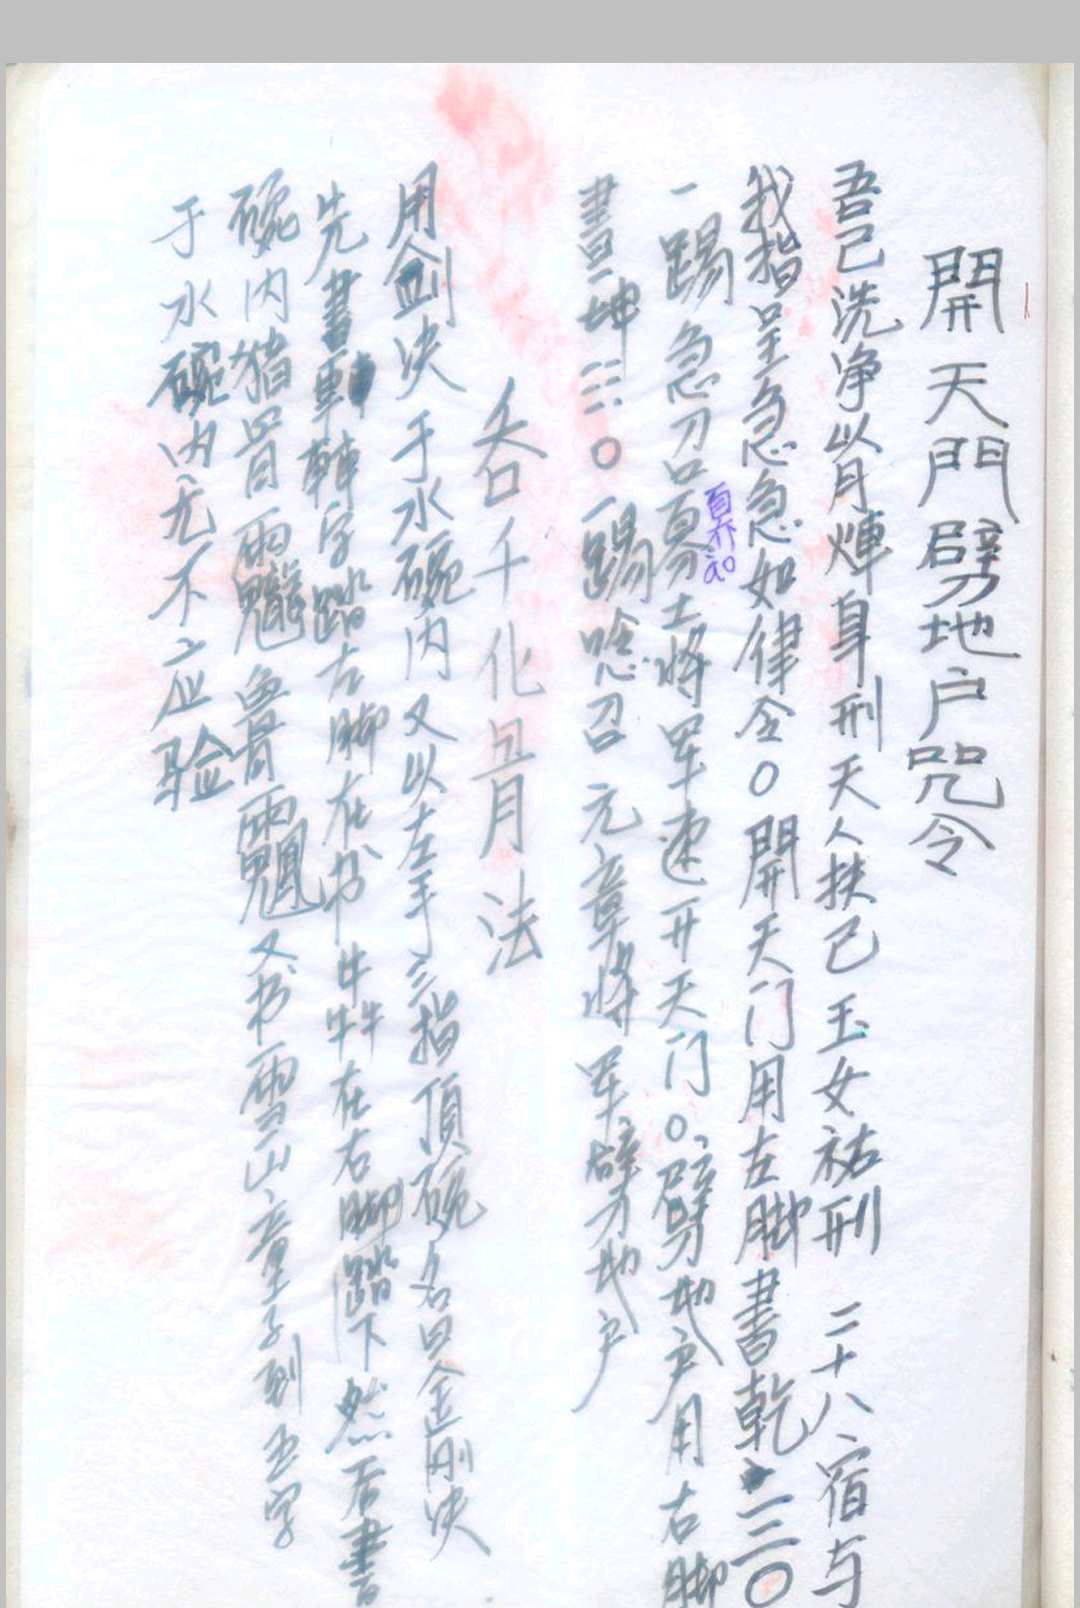 開天門劈地户咒令
吾己洗净以月煇身刑天人扶己玉女祐刑二十八宿与
我指呈急急如律令〇開天门用左脚書乾☰〇
一踢急刀口募士將军速开天门〇劈地户用右脚
畫坤☷〇一踢唸召元章將军劈地户
吞千化丑月法
用劍决于水碗内又以左手三指頂碗名曰金刚决
先書車轉字踏左脚在书牛牪在右脚踏下然后書
碗内猪骨鱼骨又书雪山童子到五字
于水碗内无不应验